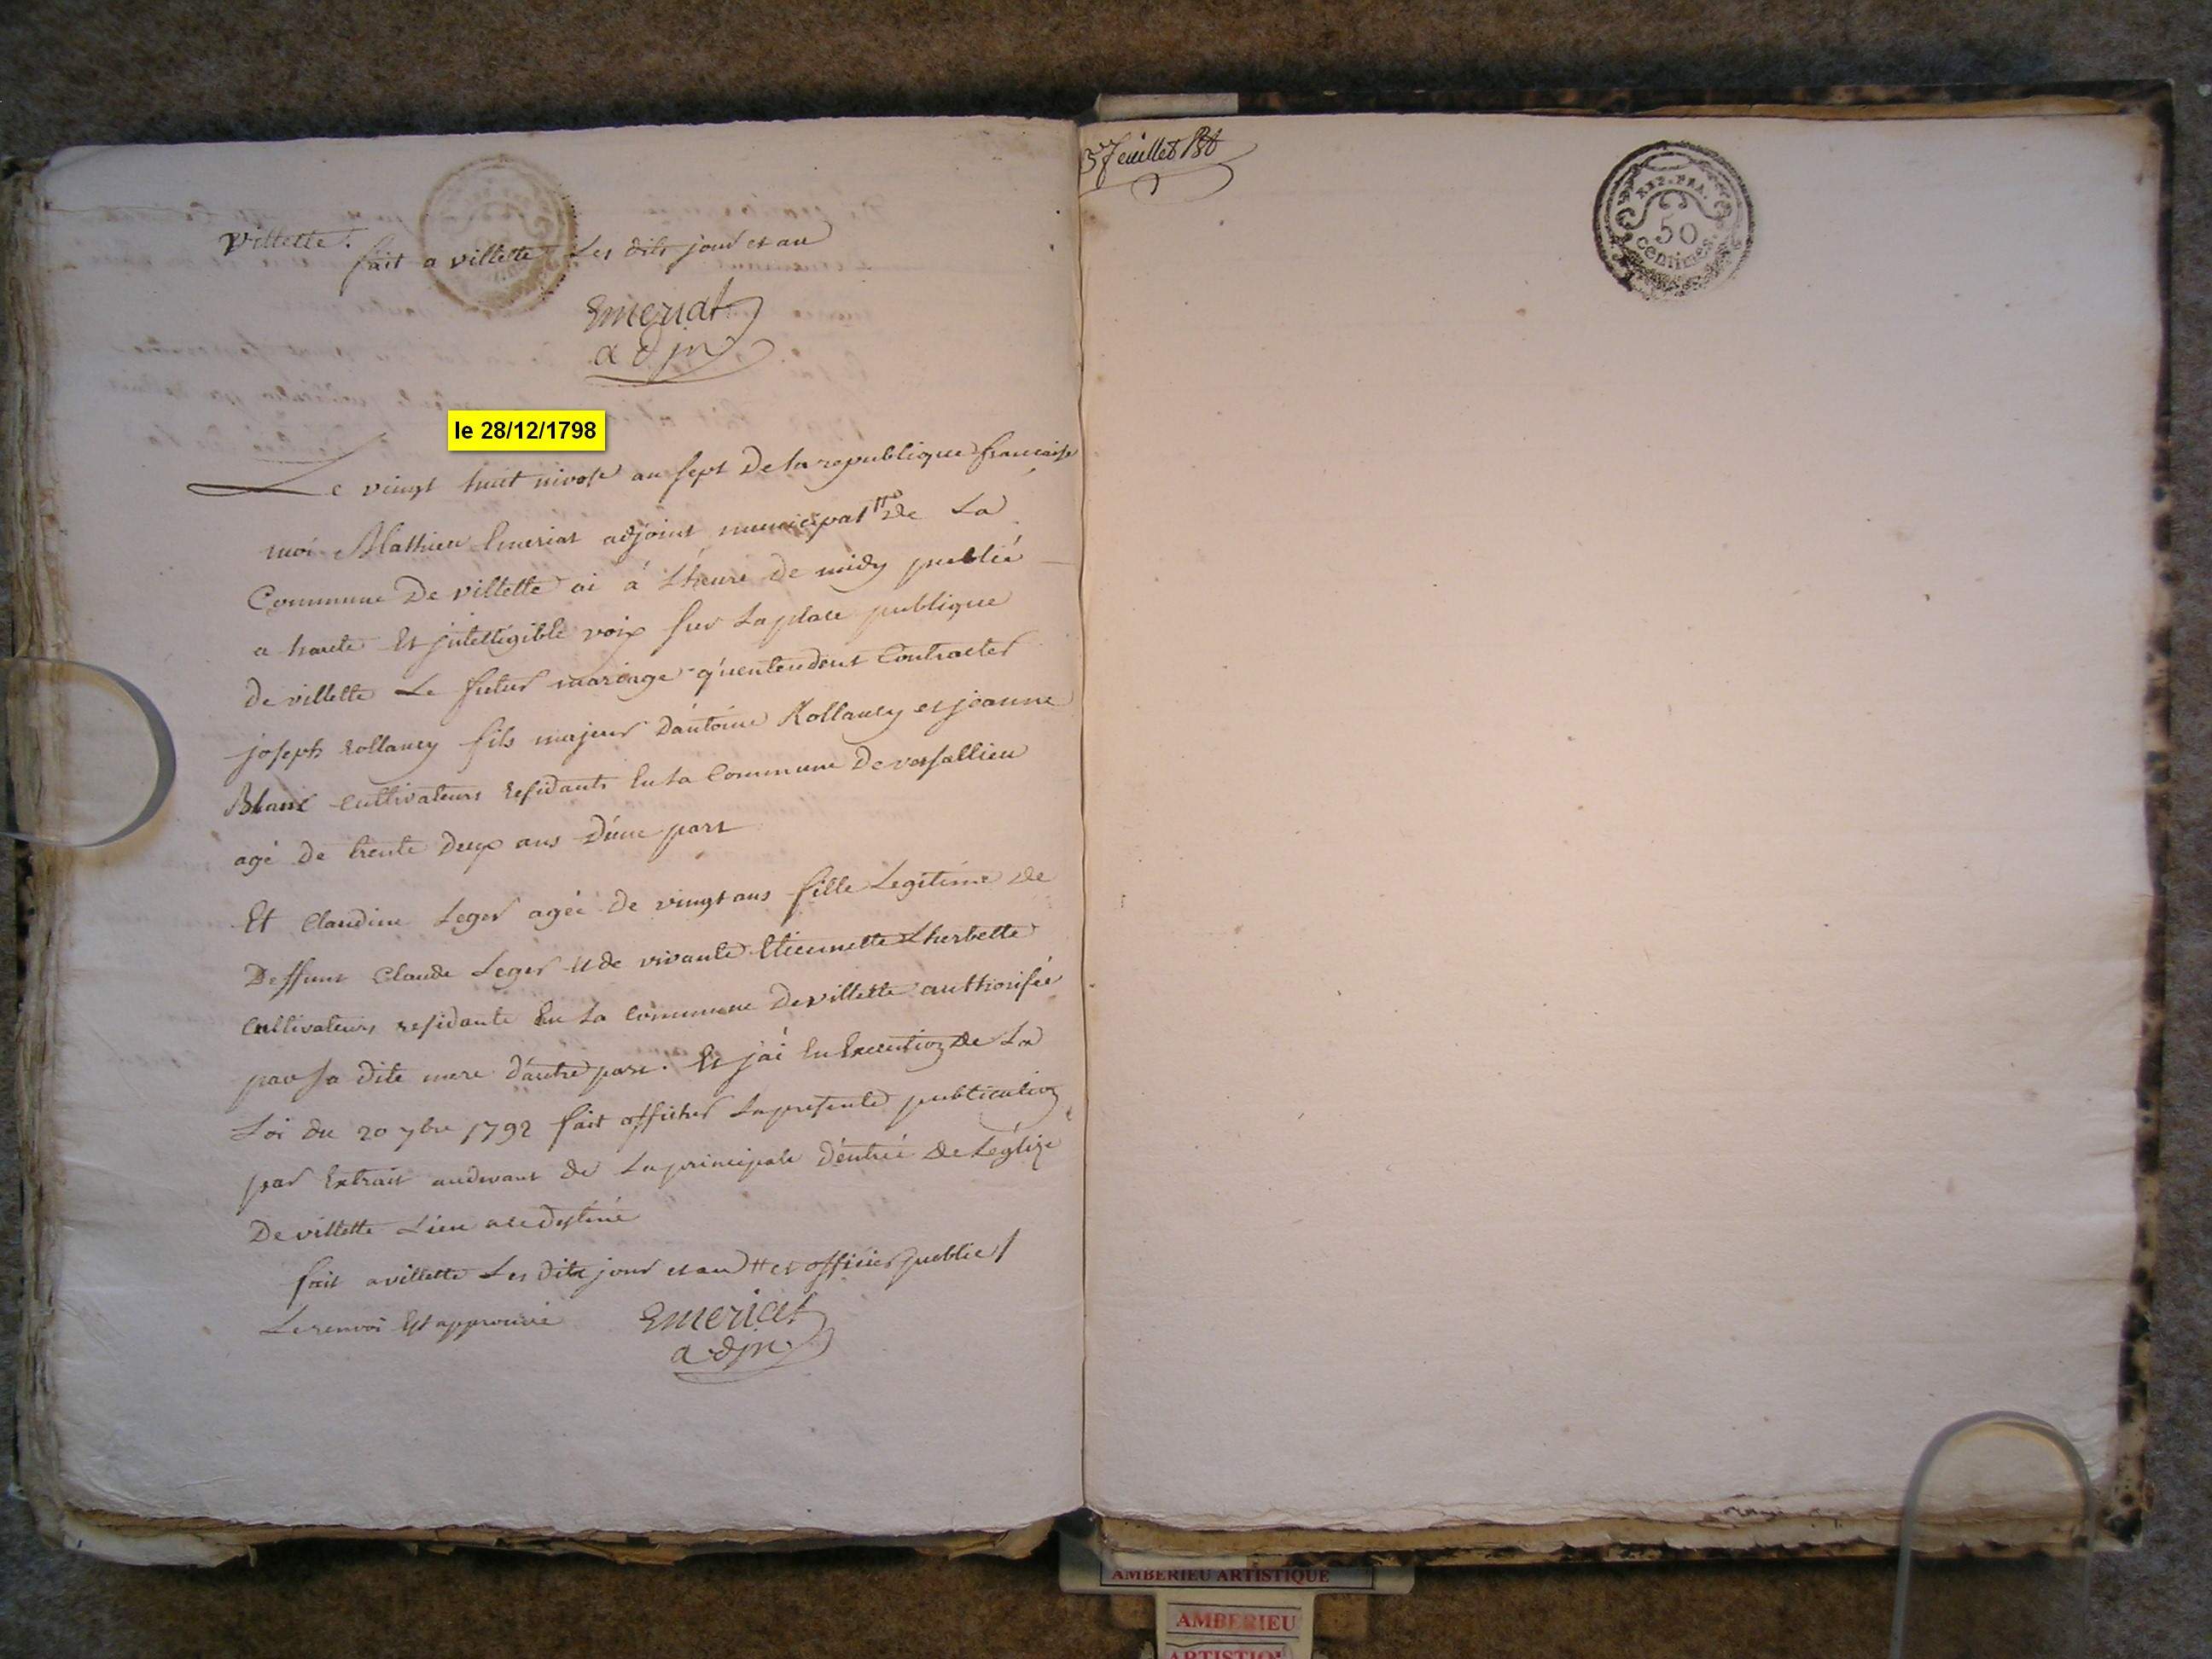 villette.
fait a villette Les dits jour et an
Emeriat
adjn
le 28/12/1798
Le vingt huit nivose an sept De la republique francaise
moi Mathieu Emeriat adjoint municipal # de La
Commune De villette ai à L'heure de midy publié
a haute Et jntelligible voix sur La place publique
de villette Le futur mariage qu'entendent Contracter
joseph Rollaney fils majeur D'antoine Rollaney et jeanne
Blanc Cultivateurs Residants En La Commune De versallieu
agé De trente Deux ans D'une part
Et Claudine Leger agée De vingt ans fille Legitime de
Deffunt Claude Leger et de vivante Etiennette Lherbette
Cultivateurs residante En La Commune De villette authorisée
par sa dite mere D'autre part. Et j'ai En Execution De La
Loi du 20 7bre 1792 fait afficher La presente publication
par Extrait audevant de La principale D'entrée De L'églize
De villette Lieu a ce Destiné
fait a villette Les Dits jour et an # et officier public /
Le renvoi Est approuvé
Emeriat
adjn
5e feuillet
REP. FRA.
50
centimes.
AMBERIEU ARTISTIQUE
AMBERIEU
ARTISTIQUE